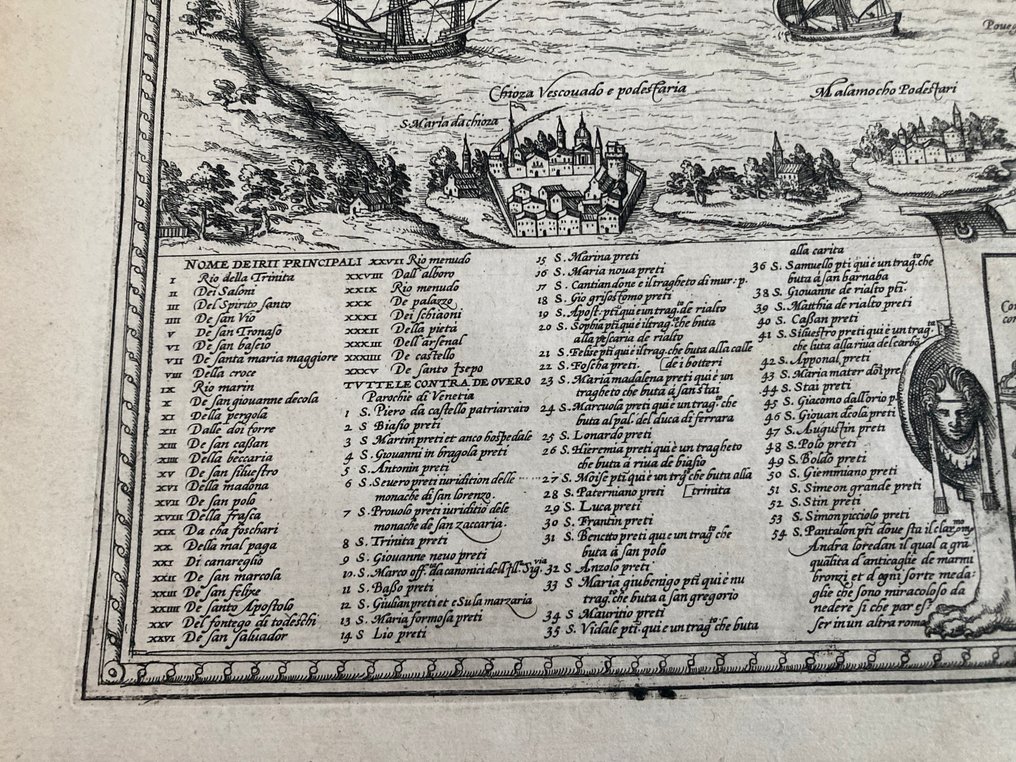 Poveg
Chioza Vescouado e podestaria
Malamocho Podestari
S. Maria da chioza
NOME DEI RII PRINCIPALI
I Rio della Trinita
II Dei Saloni
III Del Spirito santo
IIII De san Vio
V De san Tronaso
VI De san baseio
VII De santa maria maggiore
VIII Della croce
IX Rio marin
X De san giouanne decola
XI Della pergola
XII Dalle doi torre
XIII De san caßan
XIIII Della beccaria
XV De san siluestro
XVI Della madona
XVII De san polo
XVIII Della frasca
XIX Da cha foschari
XX Della mal paga
XXI Di canareglio
XXII De san marcola
XXIII De san felixe
XXIIII De santo Apostolo
XXV Del fontego di todeschi
XXVI De san saluador
XXVII Rio menudo
XXVIII Dall alboro
XXIX Rio menudo
XXX De palazzo
XXXI Dei schiaoni
XXXII Della pieta
XXXIII Dell arsenal
XXXIIII De castello
XXXV De santo Isepo
TVTTE LE CONTRADE OVERO
Parochie di Venetia
1 S. Piero da castello patriarcato
2 S Biasio preti
3 S Martin preti et anco hospedale
4 S. Giovanni in bragola preti
5 S. Antonin preti
6 S. Severo preti iuridition delle
monache di san lorenzo.
7 S. Prouolo preti iuriditio dele
monache de san zaccaria.
8 S. Trinita preti
9 S. Giouanne neuo preti
10 S. Marco off. da canonici dell Ill. Sig.ria
11 S. Baßo preti
12 S. Giulian preti et e su la marzaria
13 S. Maria formosa preti
14 S Lio preti
15 S. Marina preti
16 S. Maria noua preti
17 S. Cantian doue e il tragheto di mur: p.
18 S. Gio grisostomo preti
19 S. Apost. pti qui e un trag.to de rialto
20 S. Sophia pti qui e il trag.to che buta
alla pescaria de rialto
21 S. Felise pti qui e il trag. che buta alla calle
22 S. Foscha preti. [de i botteri
23 S. Maria madalena preti qui e un
tragheto che buta á san Stai
24 S. Marcuola preti qui e un trag.to che
buta al pal. del duca di ferrara
25 S. Lonardo preti
26 S. Hieremia preti qui è un tragheto
che buta a riua de biasio
27 S. Moise pti qui è un trag.to che buta alla
28 S. Paterniano preti [trinita
29 S. Luca preti
30 S. Frantin preti
31 S. Beneto preti que e un trag.to che
buta á san polo
32 S. Anzolo preti
33 S Maria giubenigo pti qui e nu
trag.to che buta á san gregorio
34 S Mauritio preti
35 S. Vidale pti. qui e un trag.to che buta
alla carita
36 S. Samuello pti qui é un trag.to che
buta á san barnaba
38 S. Giouanne de rialto pti.
39 S. Matthia de rialto preti
40 S. Caßan preti
41 S. Siluestro preti qui è un trag.to
che buta alla riua del carbō
42 S. Apponal preti
43 S. Maria mater dōi pre.
44 S. Stai preti
45 S. Giacomo dall orio p.
46 S. Giouan dcola preti
47 S. Augustin preti
48 S. Polo preti
49 S. Boldo preti
50 S. Giemmiano preti
51 S. Simeon grande preti
52 S. Stin preti
53 S. Simon picciolo preti
54 S. Pantalon pti doue sta il clar.mo
Andra loredan il qual a gra.
qualita d'anticaglie de marmi
bronzi et d ogni sorte meda:
glie che sono miracoloso da
nedere si che par eß
ser in un altra roma